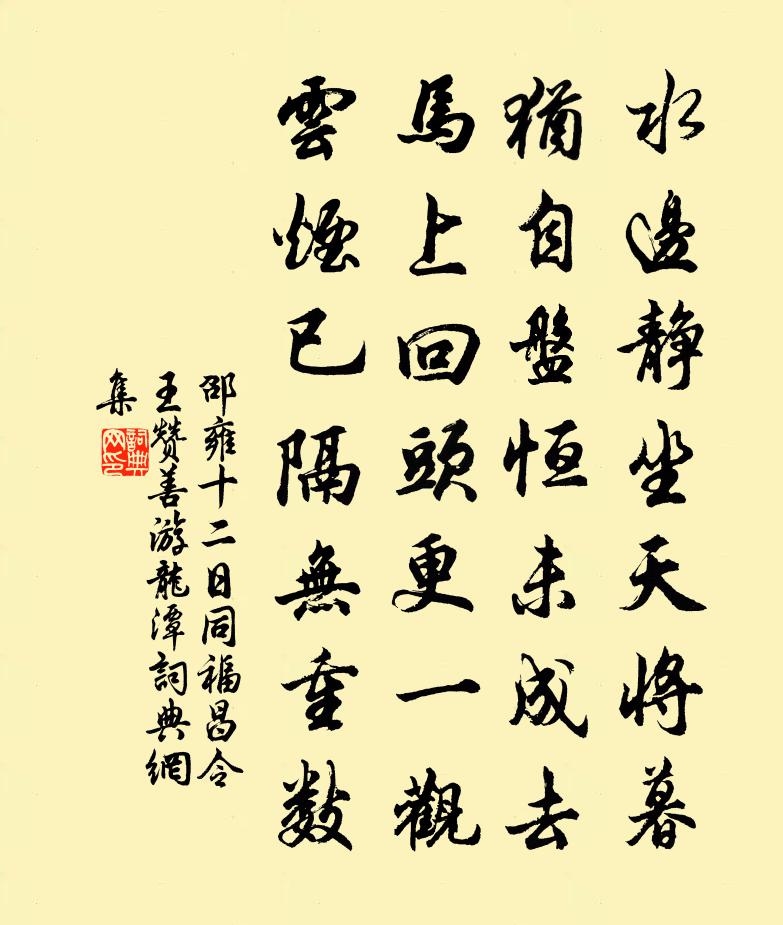 水邊靜坐天將暮
猶自盤恒未成去
馬上回頭更一觀
雲煙已隔無重數
邵雍十二日同福昌令
王赞善游龍潭詞典網
集
詞典
网印